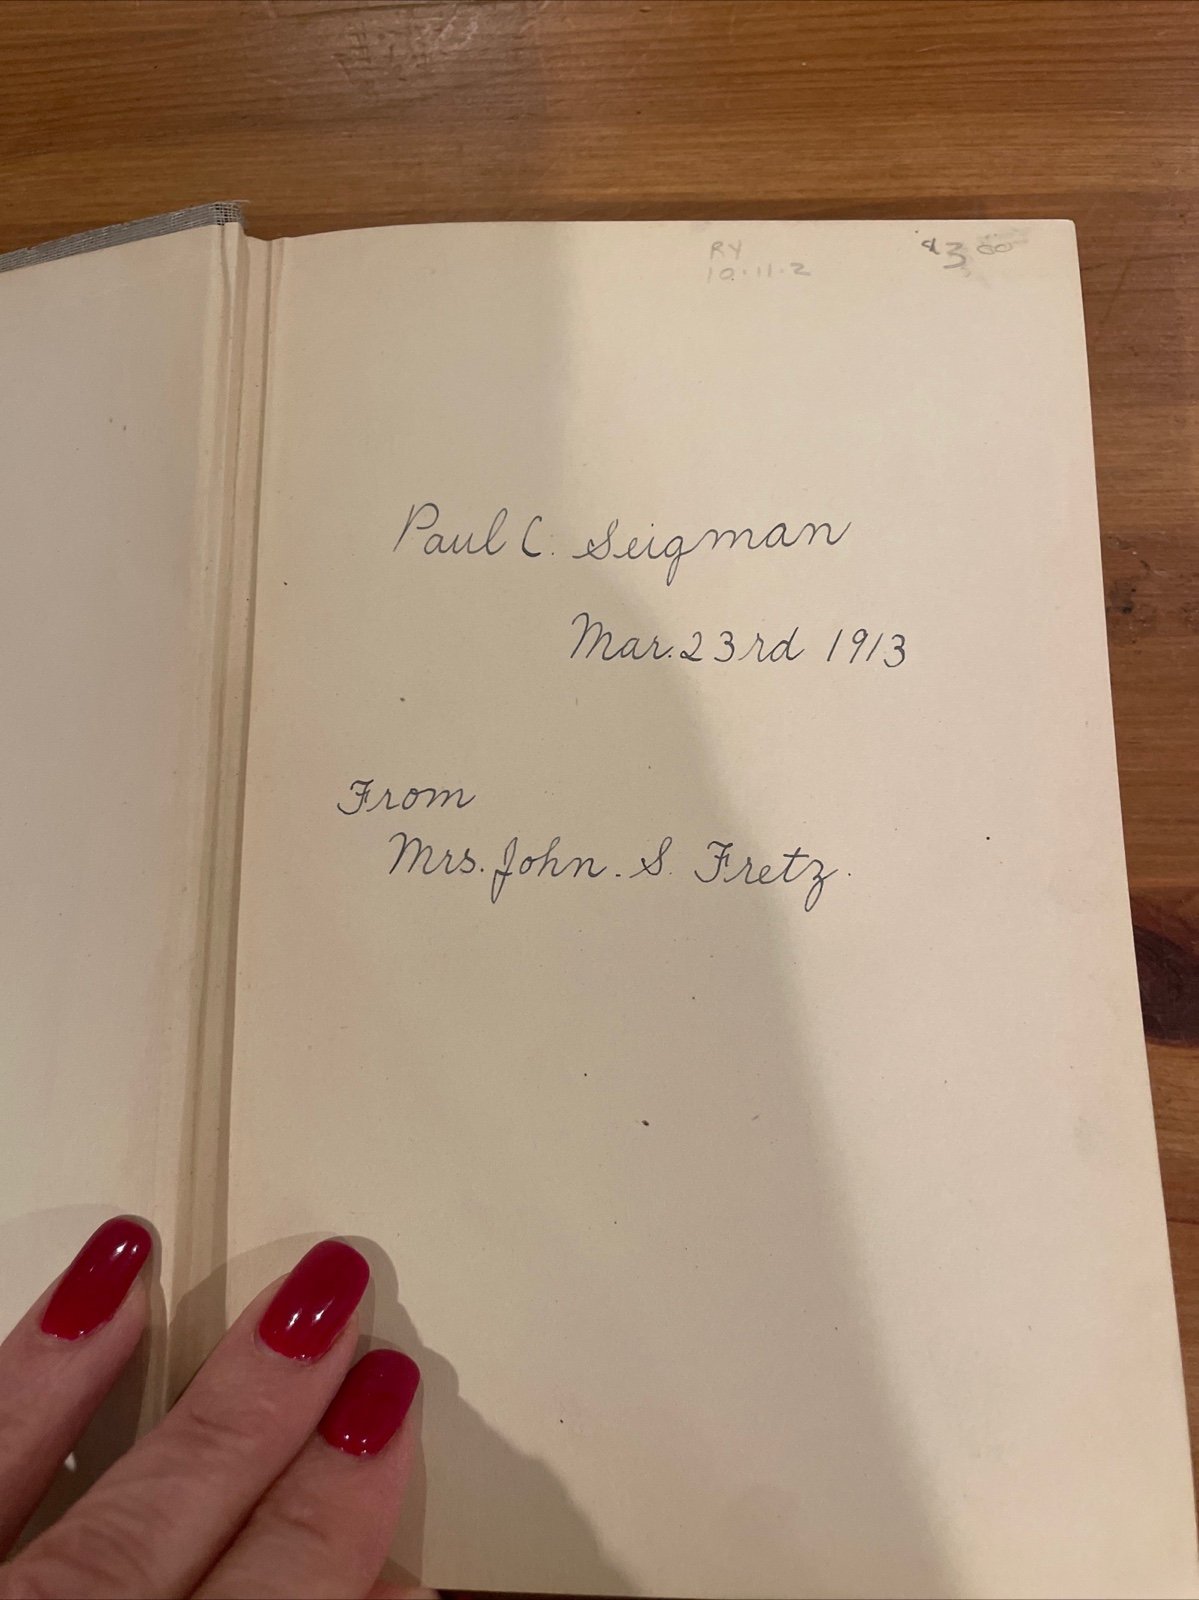 RY
10.11.2
$3.00
Paul C. Seigman
Mar. 23rd 1913
From
Mrs. John. S. Fretz.